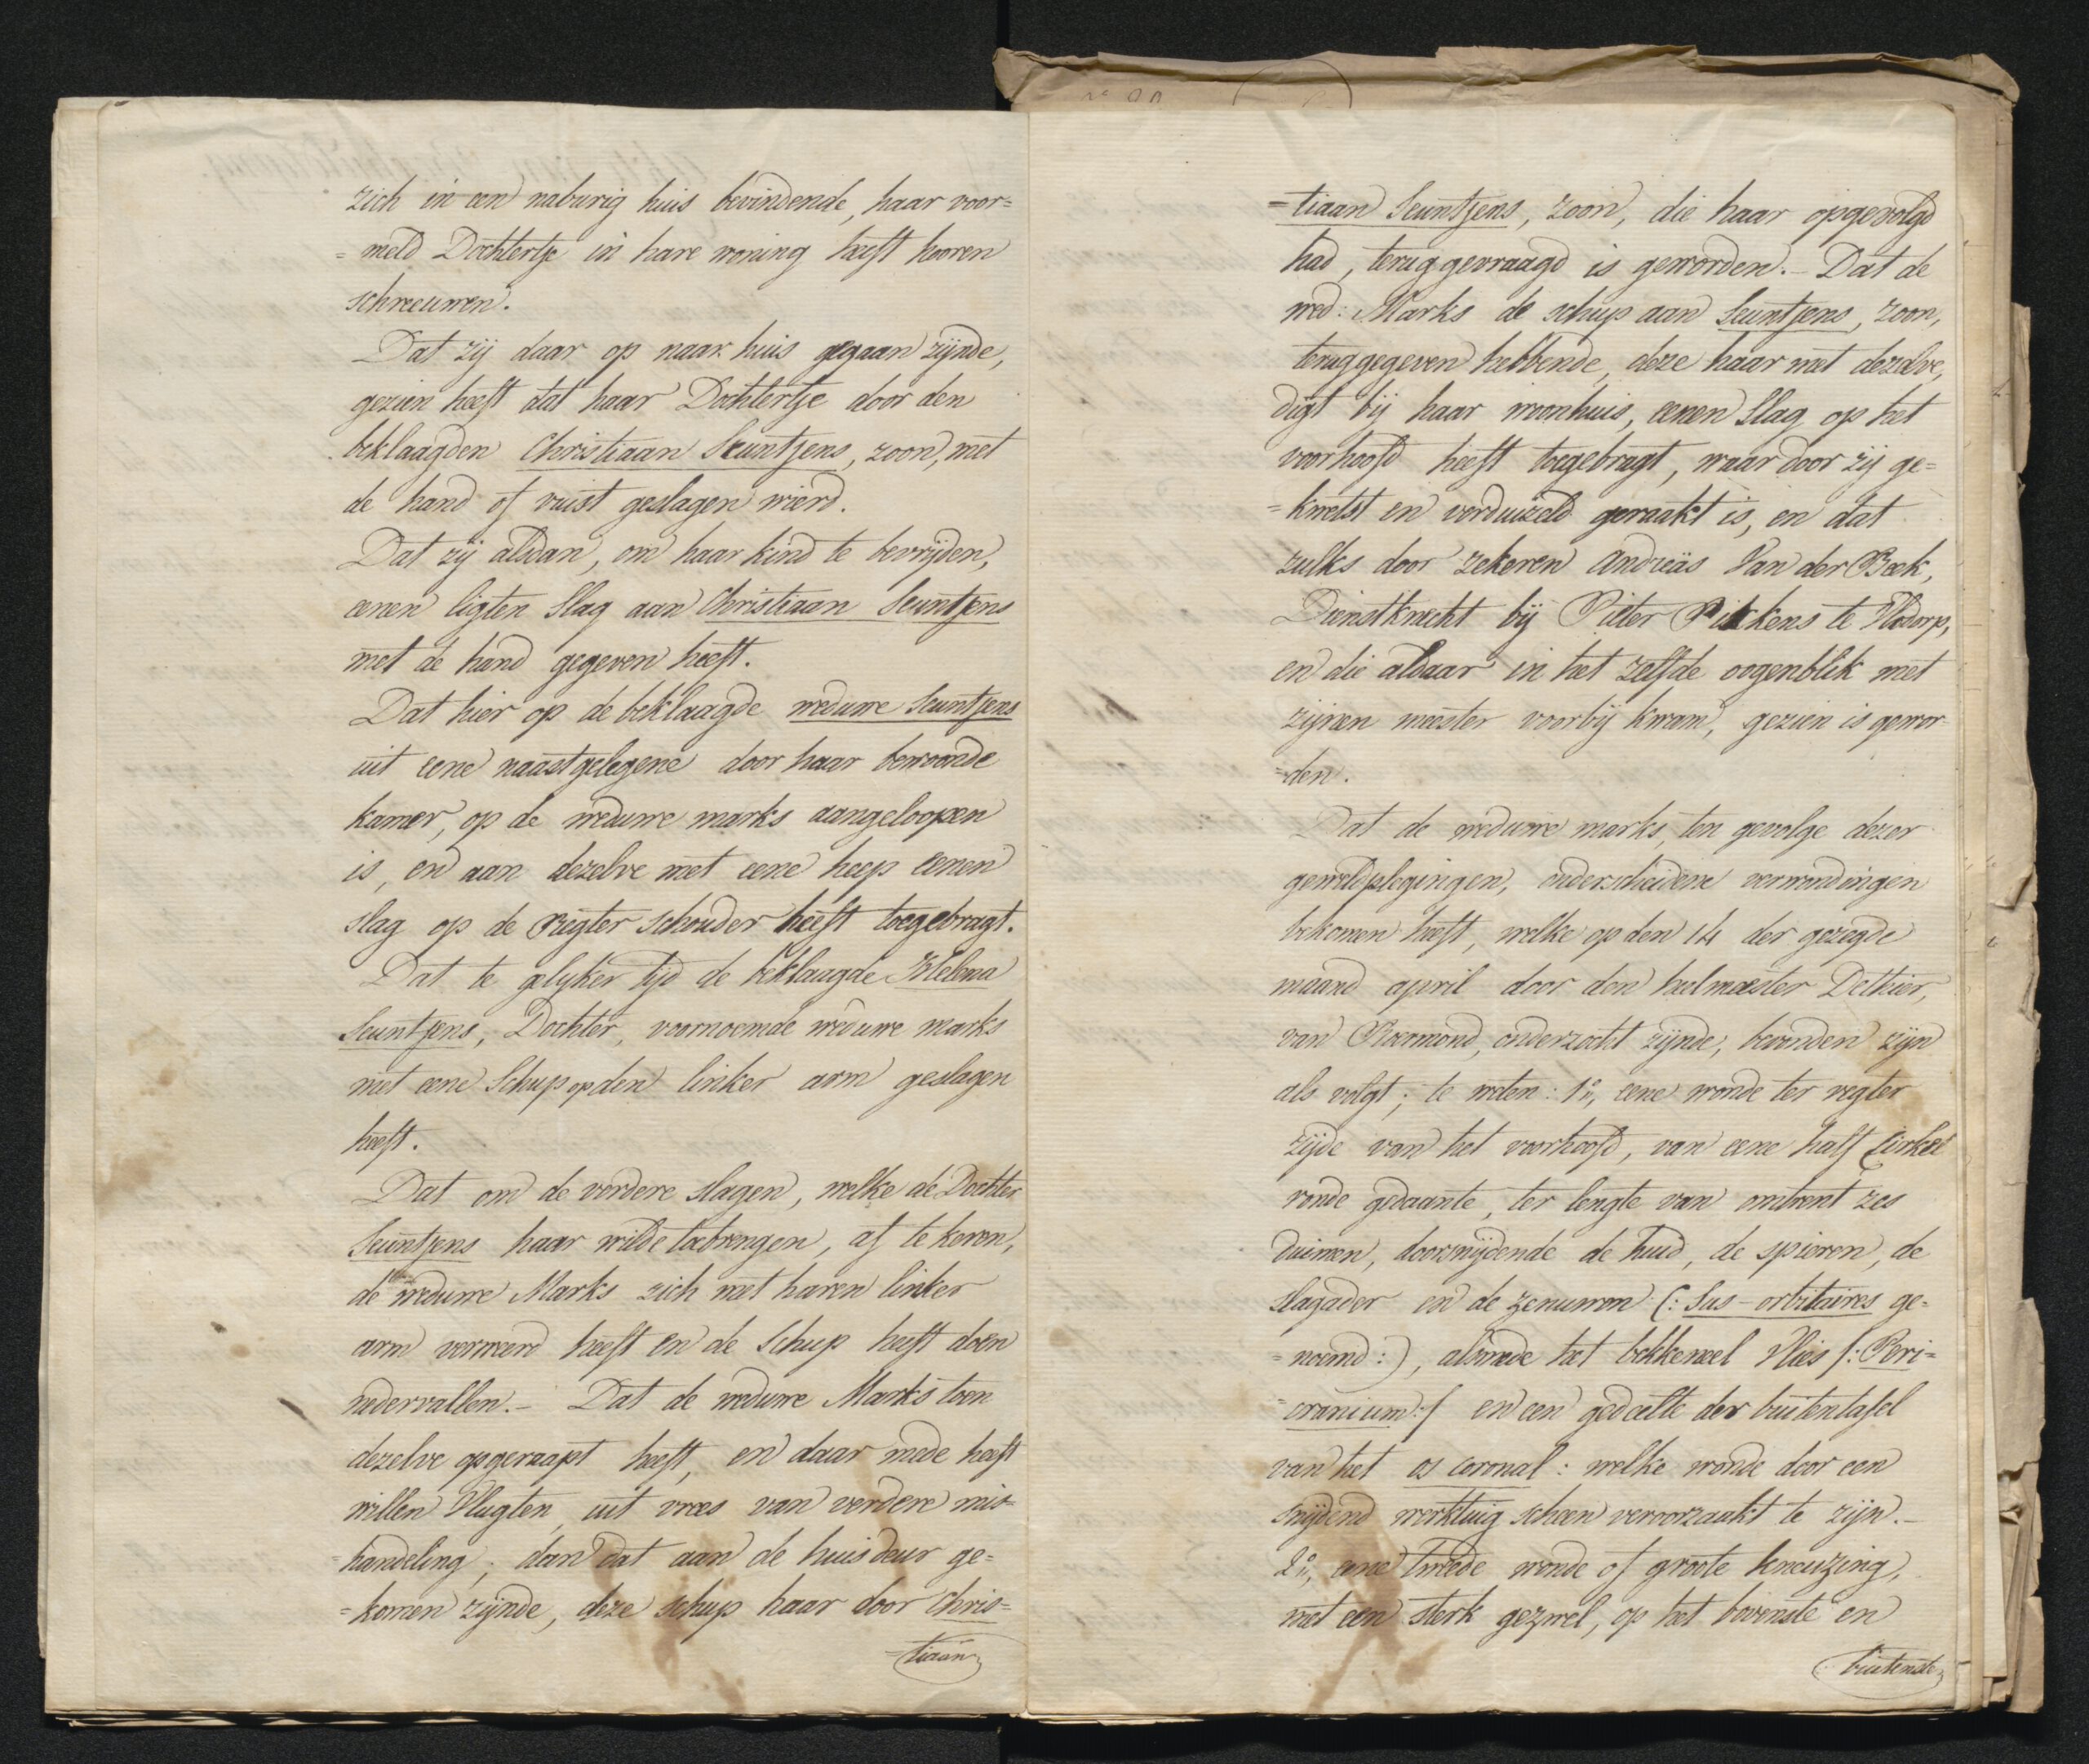 zich in een naburig huis bevindende, haar voor=
= meld Dochtertje in hare woning heeft hooren
schreeuwen.
Dat zij daar op naar huis gegaan zijnde,
gezien heeft dat haar Dochtertje door den
beklaagden Christiaan Seuntjens, zoon, met
de hand of vuist geslagen wierd.
Dat zij alsdan, om haar kind te bevrijden,
eenen ligten Slag aan Christiaan Seuntjens
met de hand gegeven heeft.
Dat hier op de beklaagde weduwe Seuntjens
uit eene naastgelegene door haar bewoonde
kamer, op de weduwe marks aangeloopen
is, en aan dezelve met eene heep eenen
slag op de Regter schouder heeft toegebragt.
Dat te gelyker tyd de beklaagde Helena
Seuntjens, Dochter, voornoemde weduwe marks
met eene Schup op den linker arm geslagen
heeft.
Dat om de verdere slagen, welke de Dochter
Seuntjens haar wilde toebrengen, af te keren,
de weduwe Marks zich met haren linker
arm verweerd heeft en de Schup heeft doen
nedervallen. - Dat de weduwe Marks toen
dezelve opgeraapt heeft, en daar mede heeft
willen Vlugten, uit vrees van verdere mis=
= handeling; dan dat aan de huisdeur ge=
= komen zijnde, deze schup haar door Chris=
= tiaan
= tiaan Seuntjens, zoon, die haar opgevolgd
had, terug gevraagd is geworden. - Dat de
wed: Marks de schup aan Seuntjens, zoon,
teruggegeven hebbende, deze haar met dezelve,
digt bij haar woonhuis, eenen Slag op het
voorhoofd heeft toegebragt, waar door zij ge=
= kwetst en verduizeld geraakt is, en dat
zulks door zekeren Andreas Van der Beek,
Dienstknecht bij Pieter Rikkens te Vlodorp,
en die aldaar in het zelfde oogenblik met
zijnen meester voorbij kwam, gezien is gewor=
= den.
Dat de weduwe marks, ten gevolge dezer
geweldplegingen, onderscheidene verwondingen
bekomen heeft, welke op den 14 der gezegde
maand april door den heelmeester Dethier,
van Roermond, onderzocht zijnde, bevonden zijn
als volgt; te weten: 1°, eene wonde ter regter
zijde van het voorhoofd, van eene half Cirkel
ronde gedaante, ter lengte van omtrent zes
duimen, doorsnijdende de huid, de spieren, de
slagader en de zenuwen (: Sus - orbitaires ge=
= noemd :), alsmede het bekkeneel Vlies (: Peri=
= cranium :) en een gedeelte der buitentafel
van het os coronal : welke wonde door een
snijdend werktuig scheen veroorzaakt te zijn. -
2°, eene tweede wonde of groote kneuzing,
met een sterk gezwel, op het bovenste en
buitenste